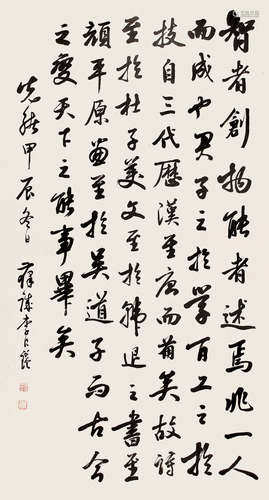 智者創物能者述焉非一人
而成也君子之於學百工之於
技自三代歷漢至唐而備矣故詩
至於杜子美文至於韓退之書至
顏平原畫至於吳道子而古今
之變天下之能事畢矣
光緒甲辰冬日